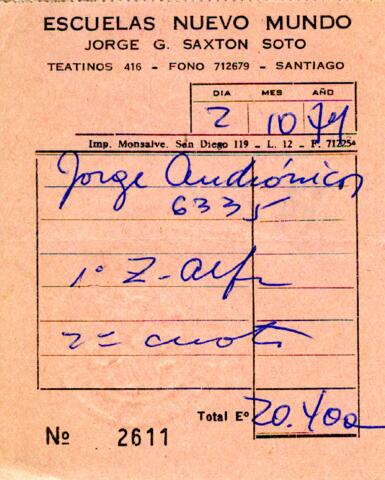 ESCUELAS NUEVO MUNDO
JORGE G. SAXTON SOTO
TEATINOS 416 - FONO 712679 - SANTIAGO
DIA MES AÑO
2 10 74
Imp. Monsalve. San Diego 119 - L. 12 - F. 71225
Jorge Andrónicos
6335
1º Z-alfa
2= cuota
Total Eº 20.400
Nº 2611